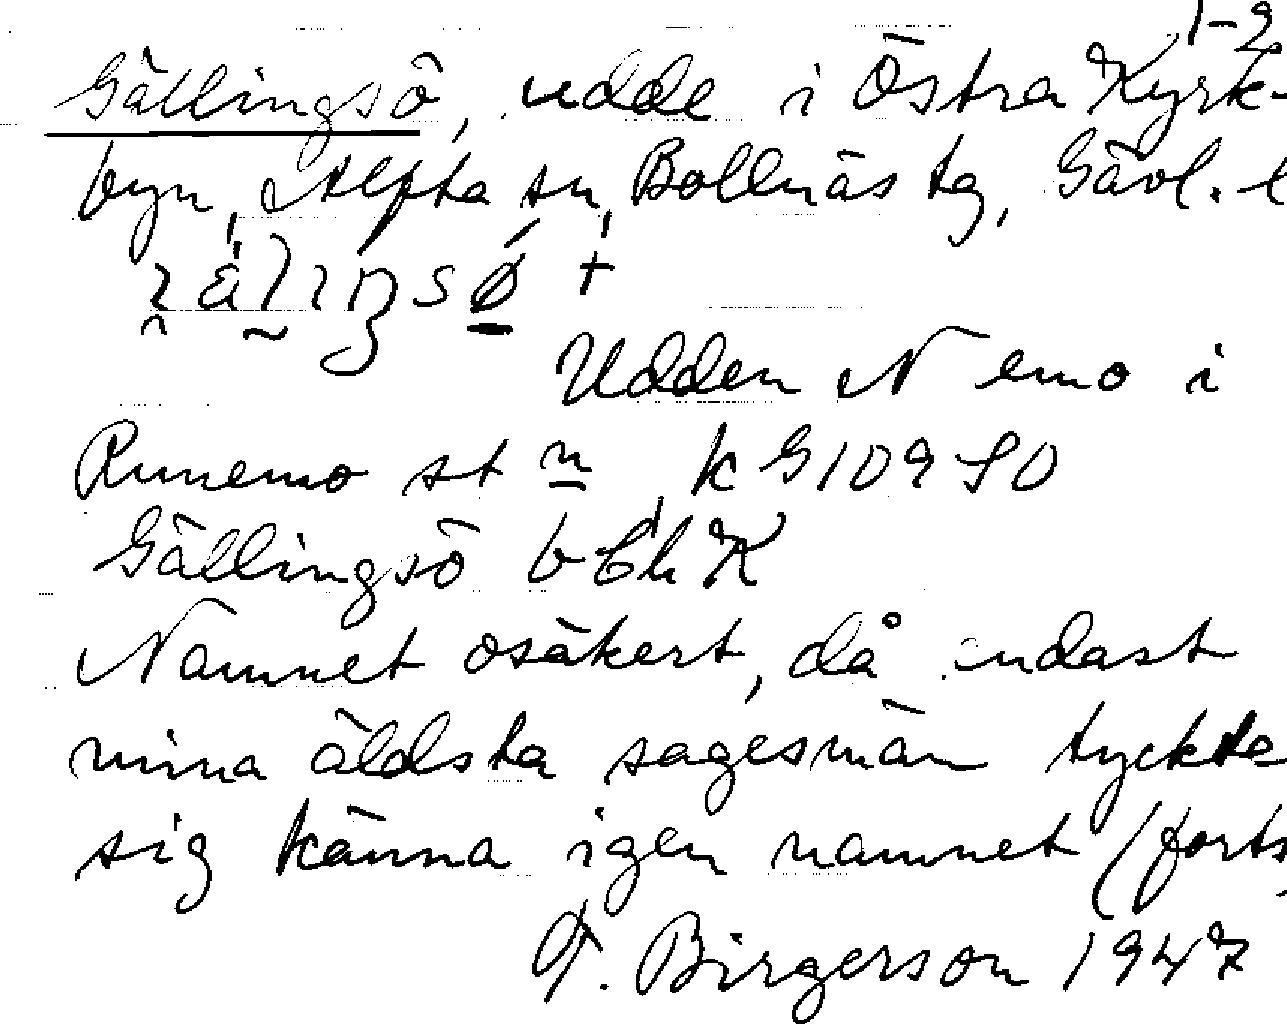 1-2
Gällingsö, udde i Östra Kyrk-
byn, Alfta sn, Bollnäs tg, Gävl. l
Udden N emo i
Runemo st n, k G 109 SO
Gällingsö b Ch K
Namnet osäkert, då endast
mina äldsta sagesmän tyckte
sig känna igen namnet (forts,
T. Birgerson 1947